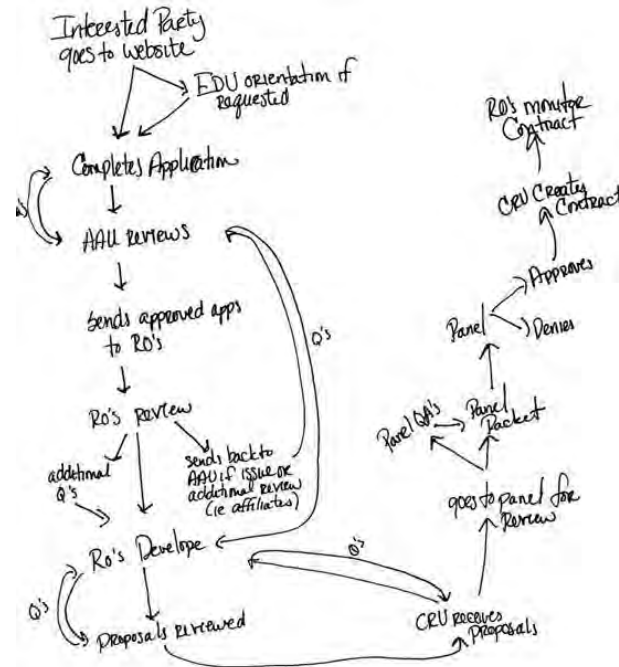 Interested Party
goes to website
EDU orientation if
requested
Completes Application
AAU reviews
sends approved apps
to RO's
RO's Review
additional
Q's
sends back to
AAU if issue or
additional review
(ie affiliates)
Q's
Ro's Develope
Q's
Proposals reviewed
Q's
CRU receives
Proposals
goes to panel for
Review
Panel QA's
Panel
Packet
Panel
Approves
Denies
CRU Creates
Contract
RO's monitor
Contract